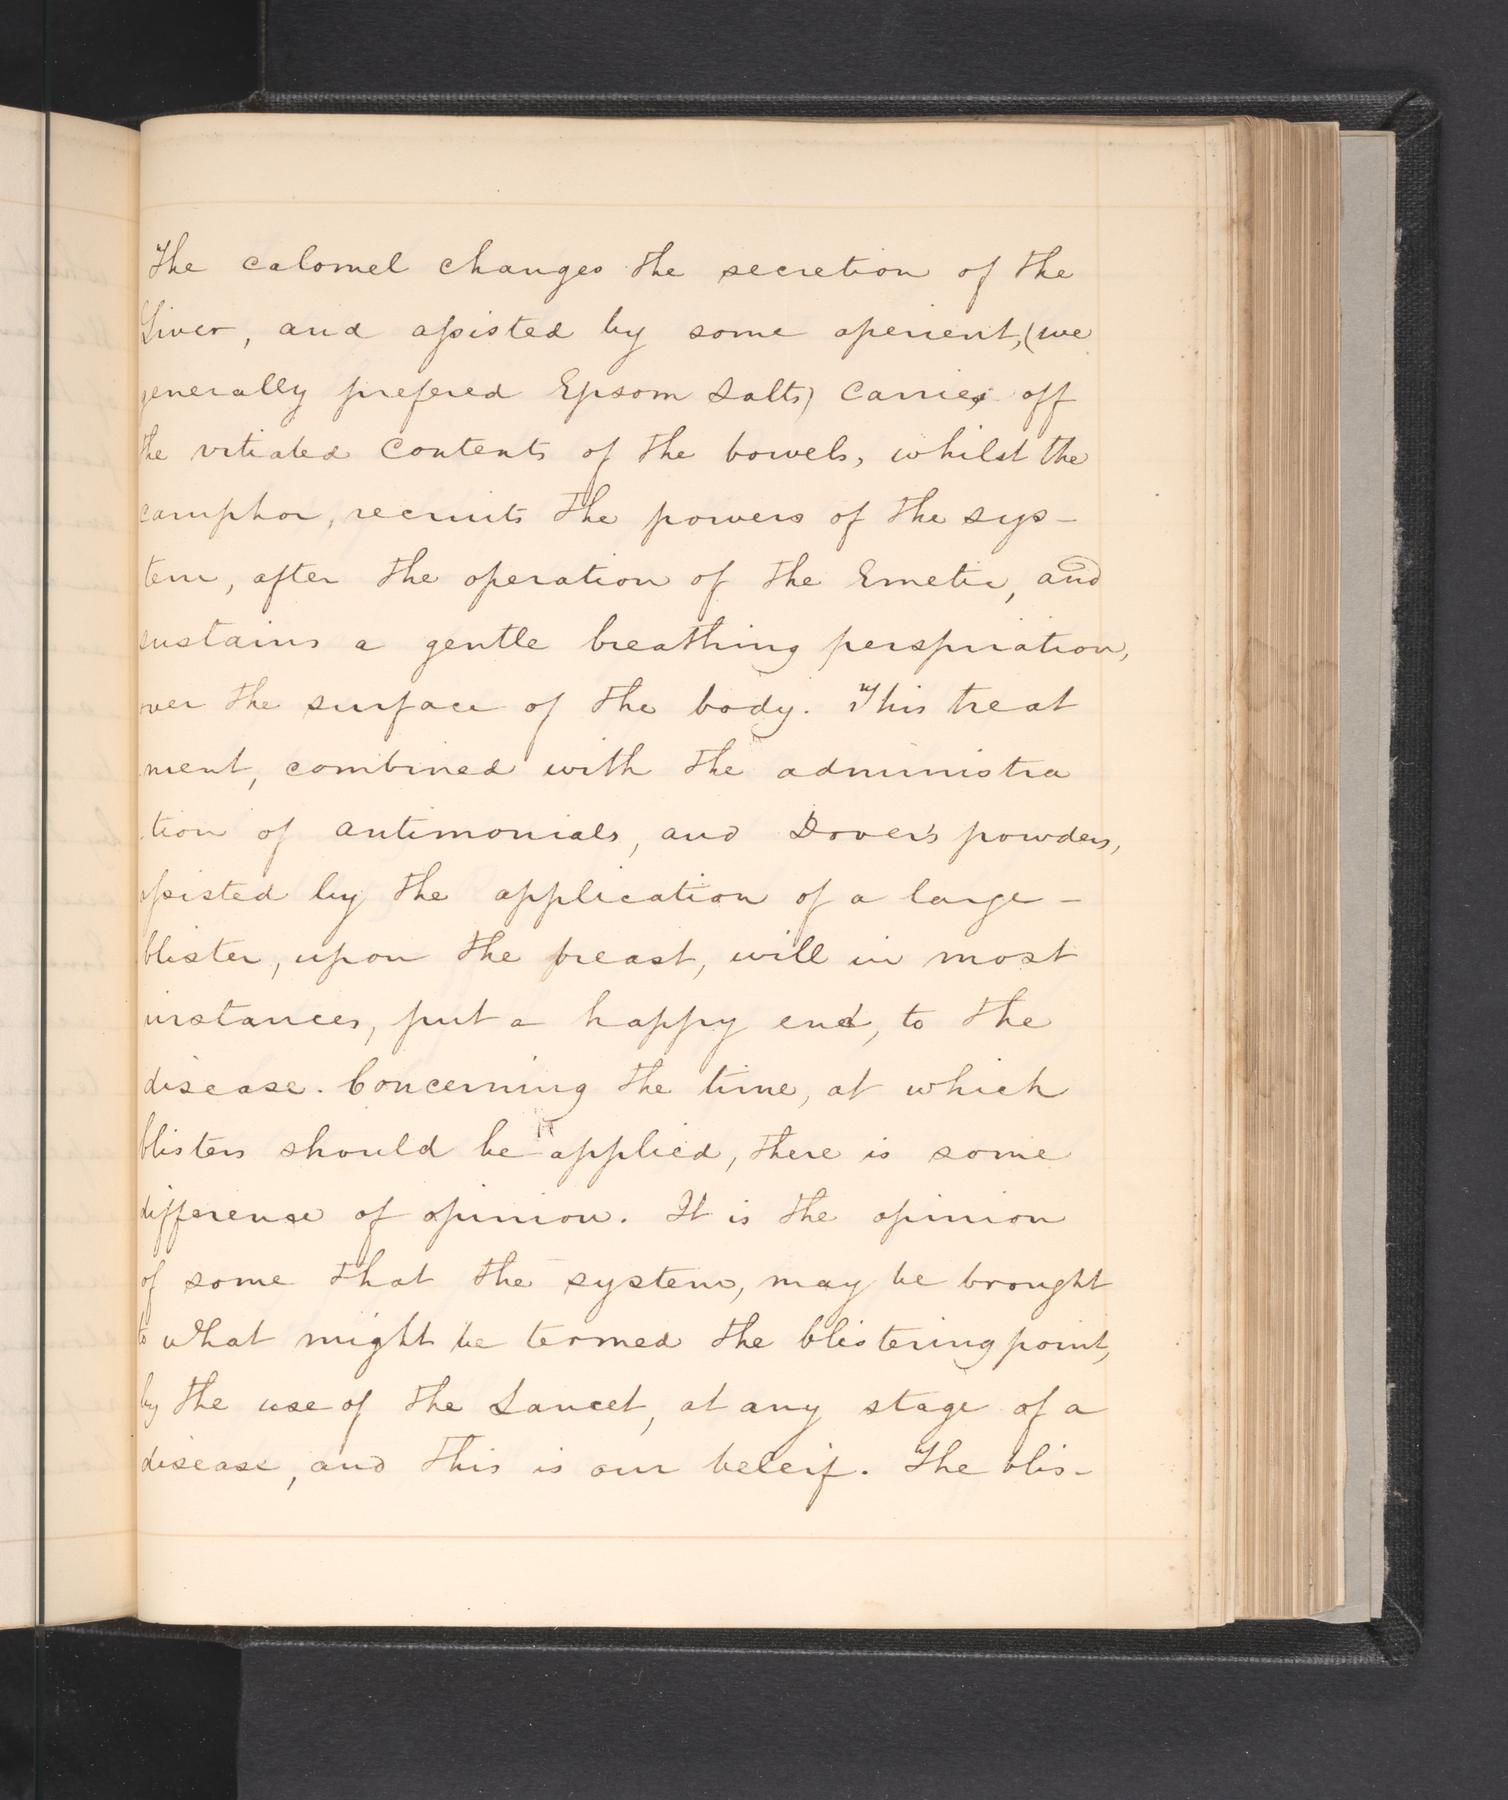 The calomel changes the secretion of the
Liver, and assisted by some aperient, (we
generally prefered Epsom Salts) carries off
the vitiated contents of the bowels, whilst the
camphor, recruits the powers of the sys-
tem, after the operation of the Emetic, and
sustains a gentle breathing perspiration,
over the surface of the body. This treat
ment, combined with the administra
tion of antimonials, and Dover's powders,
assisted by the application of a large -
blister, upon the breast, will in most
instances, put a happy end, to the
disease. Concerning the time, at which
blisters should be applied, there is some
difference of opinion. It is the opinion
of some that the system, may be brought
to what might be termed the blistering point,
by the use of the Lancet, at any stage of a
disease, and this is our beleif. The blis-